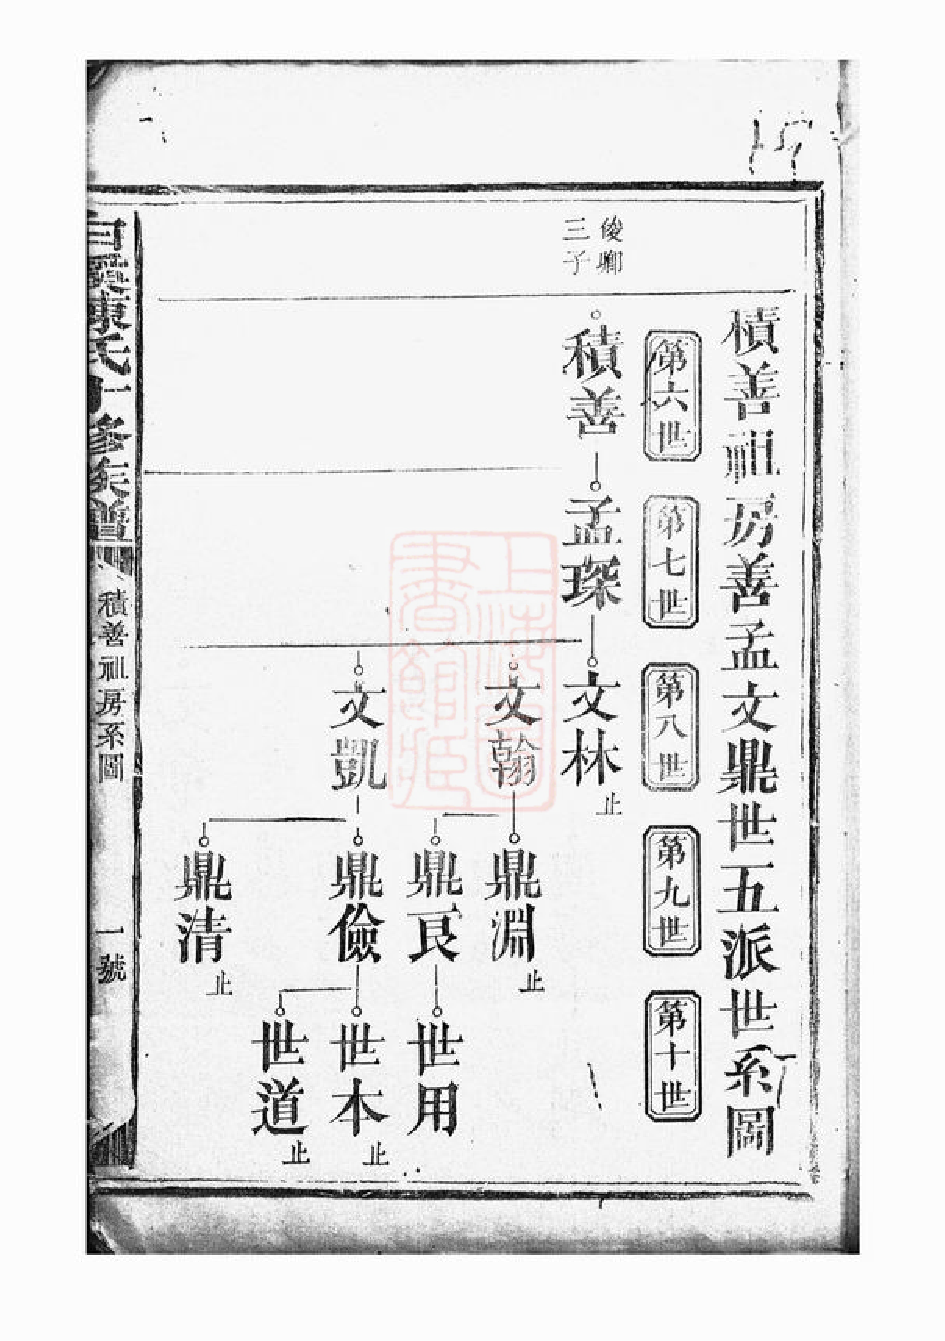 積善祖房善孟文鼎世五派世系圖
第六世
第七世
第八世
第九世
第十世
俊卿
三子
積善
孟琛
文林
止
文翰
鼎淵
止
鼎良
世用
文凱
鼎儉
世本
止
世道
止
鼎清
止
白溪陳氏十修族譜
積善祖房系圖
一號
上海圖書館藏